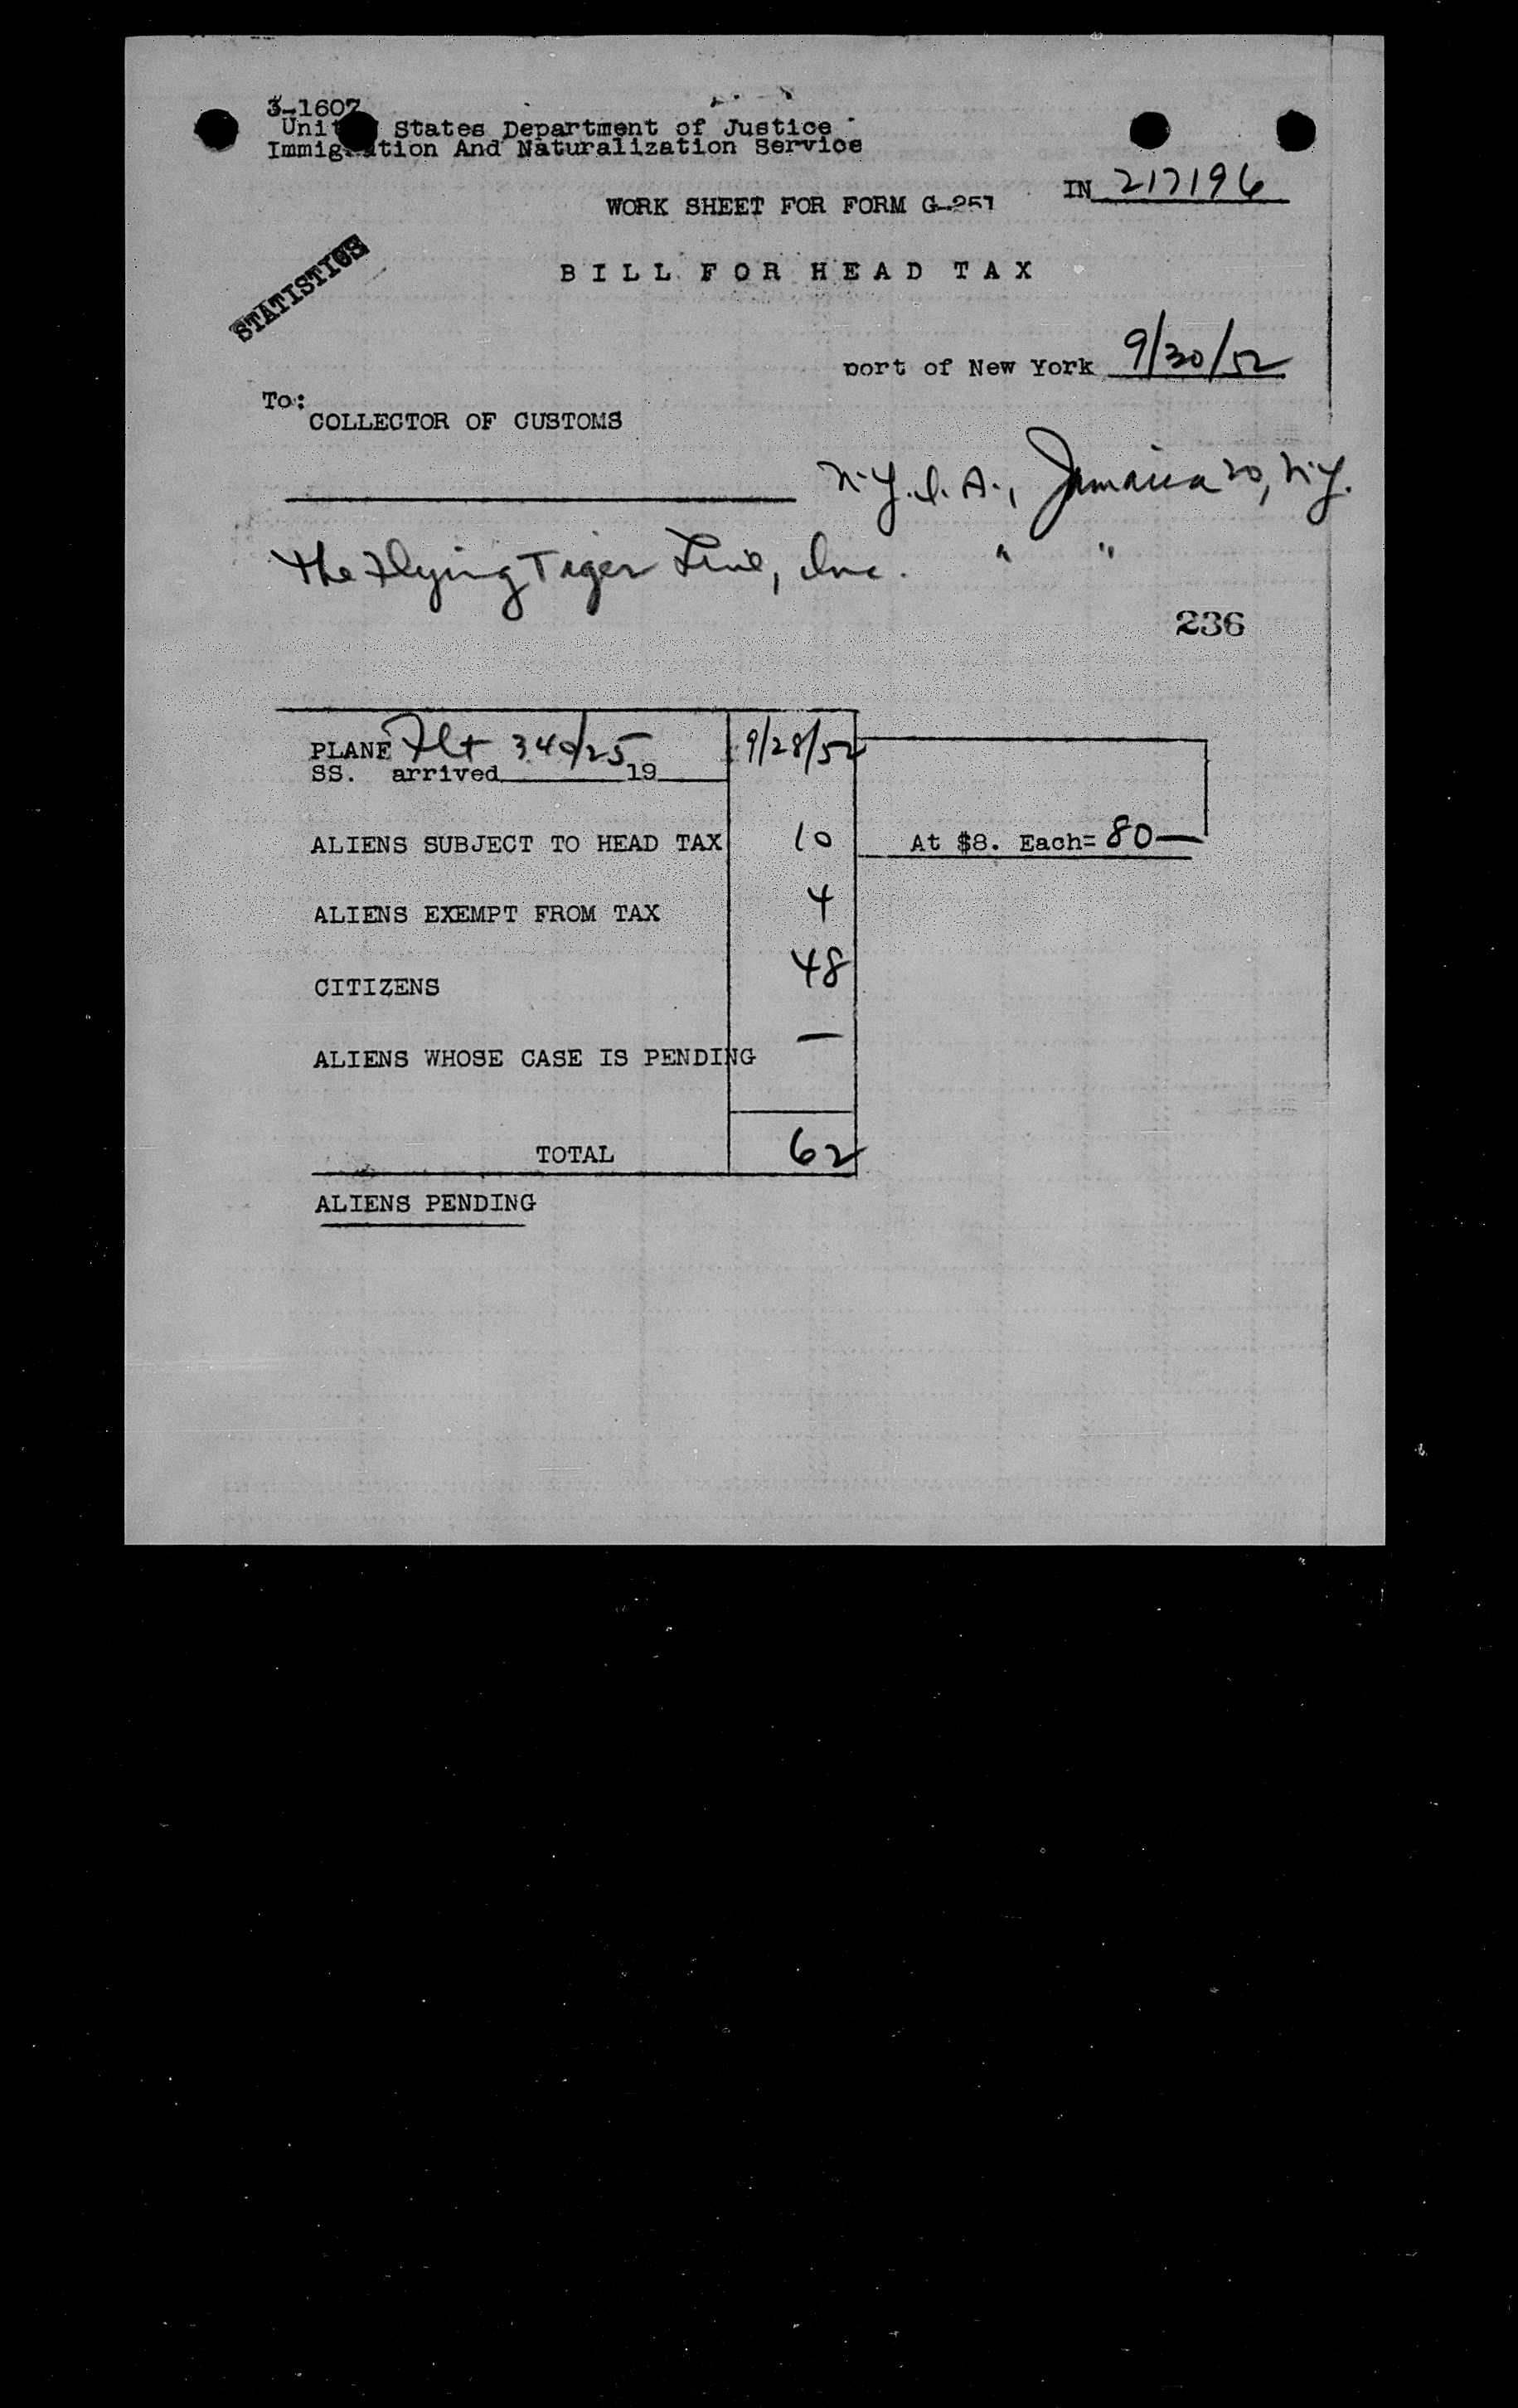 3-1607
United States Department of Justice
Immigration And Naturalization Service
IN 217196
WORK SHEET FOR FORM G-251
STATISTICS
BILL FOR HEAD TAX
port of New York 9/30/52
To:
COLLECTOR OF CUSTOMS
N.Y.I.A., Jamaica 20, N.Y.
The Flying Tiger Line, Inc. " "
236
PLANE Flt 340/25 9/28/52
SS. arrived 19
ALIENS SUBJECT TO HEAD TAX 10 At $8. Each= 80—
ALIENS EXEMPT FROM TAX 4
CITIZENS 48
ALIENS WHOSE CASE IS PENDING —
TOTAL 62
ALIENS PENDING